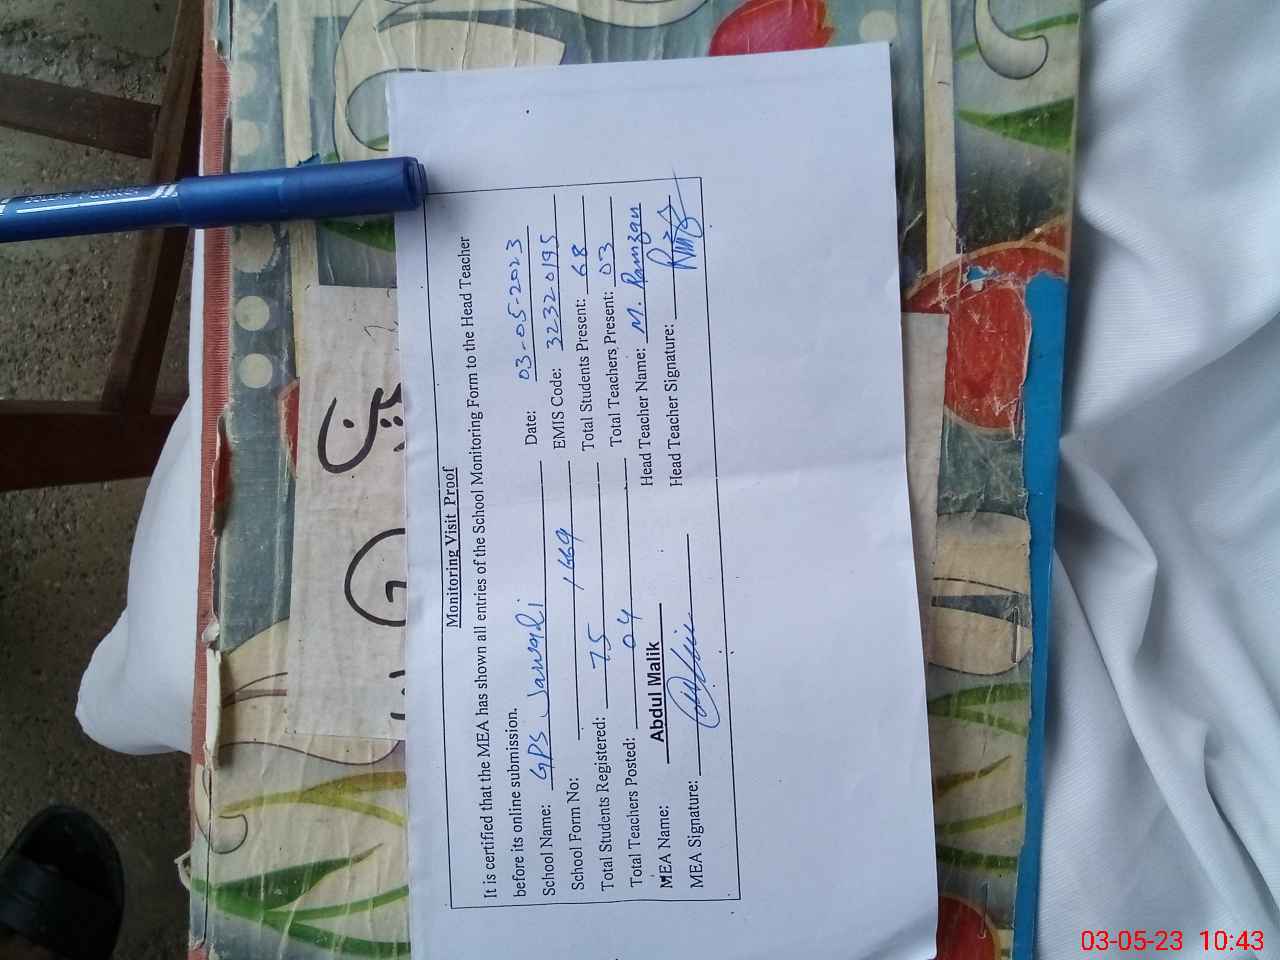 Monitoring Visit Proof
It is certified that the MEA has shown all entries of the School Monitoring Form to the Head Teacher
before its online submission.
School Name: GPS Date: 03-05-2023
School Form No: 1669 EMIS Code: 32320195
Total Students Registered: 75 Total Students Present: 68
Total Teachers Posted: 04 Total Teachers Present: 03
MEA Name: Abdul Malik Head Teacher Name: M. Ramzan
MEA Signature: Head Teacher Signature:
03-05-23 10:43